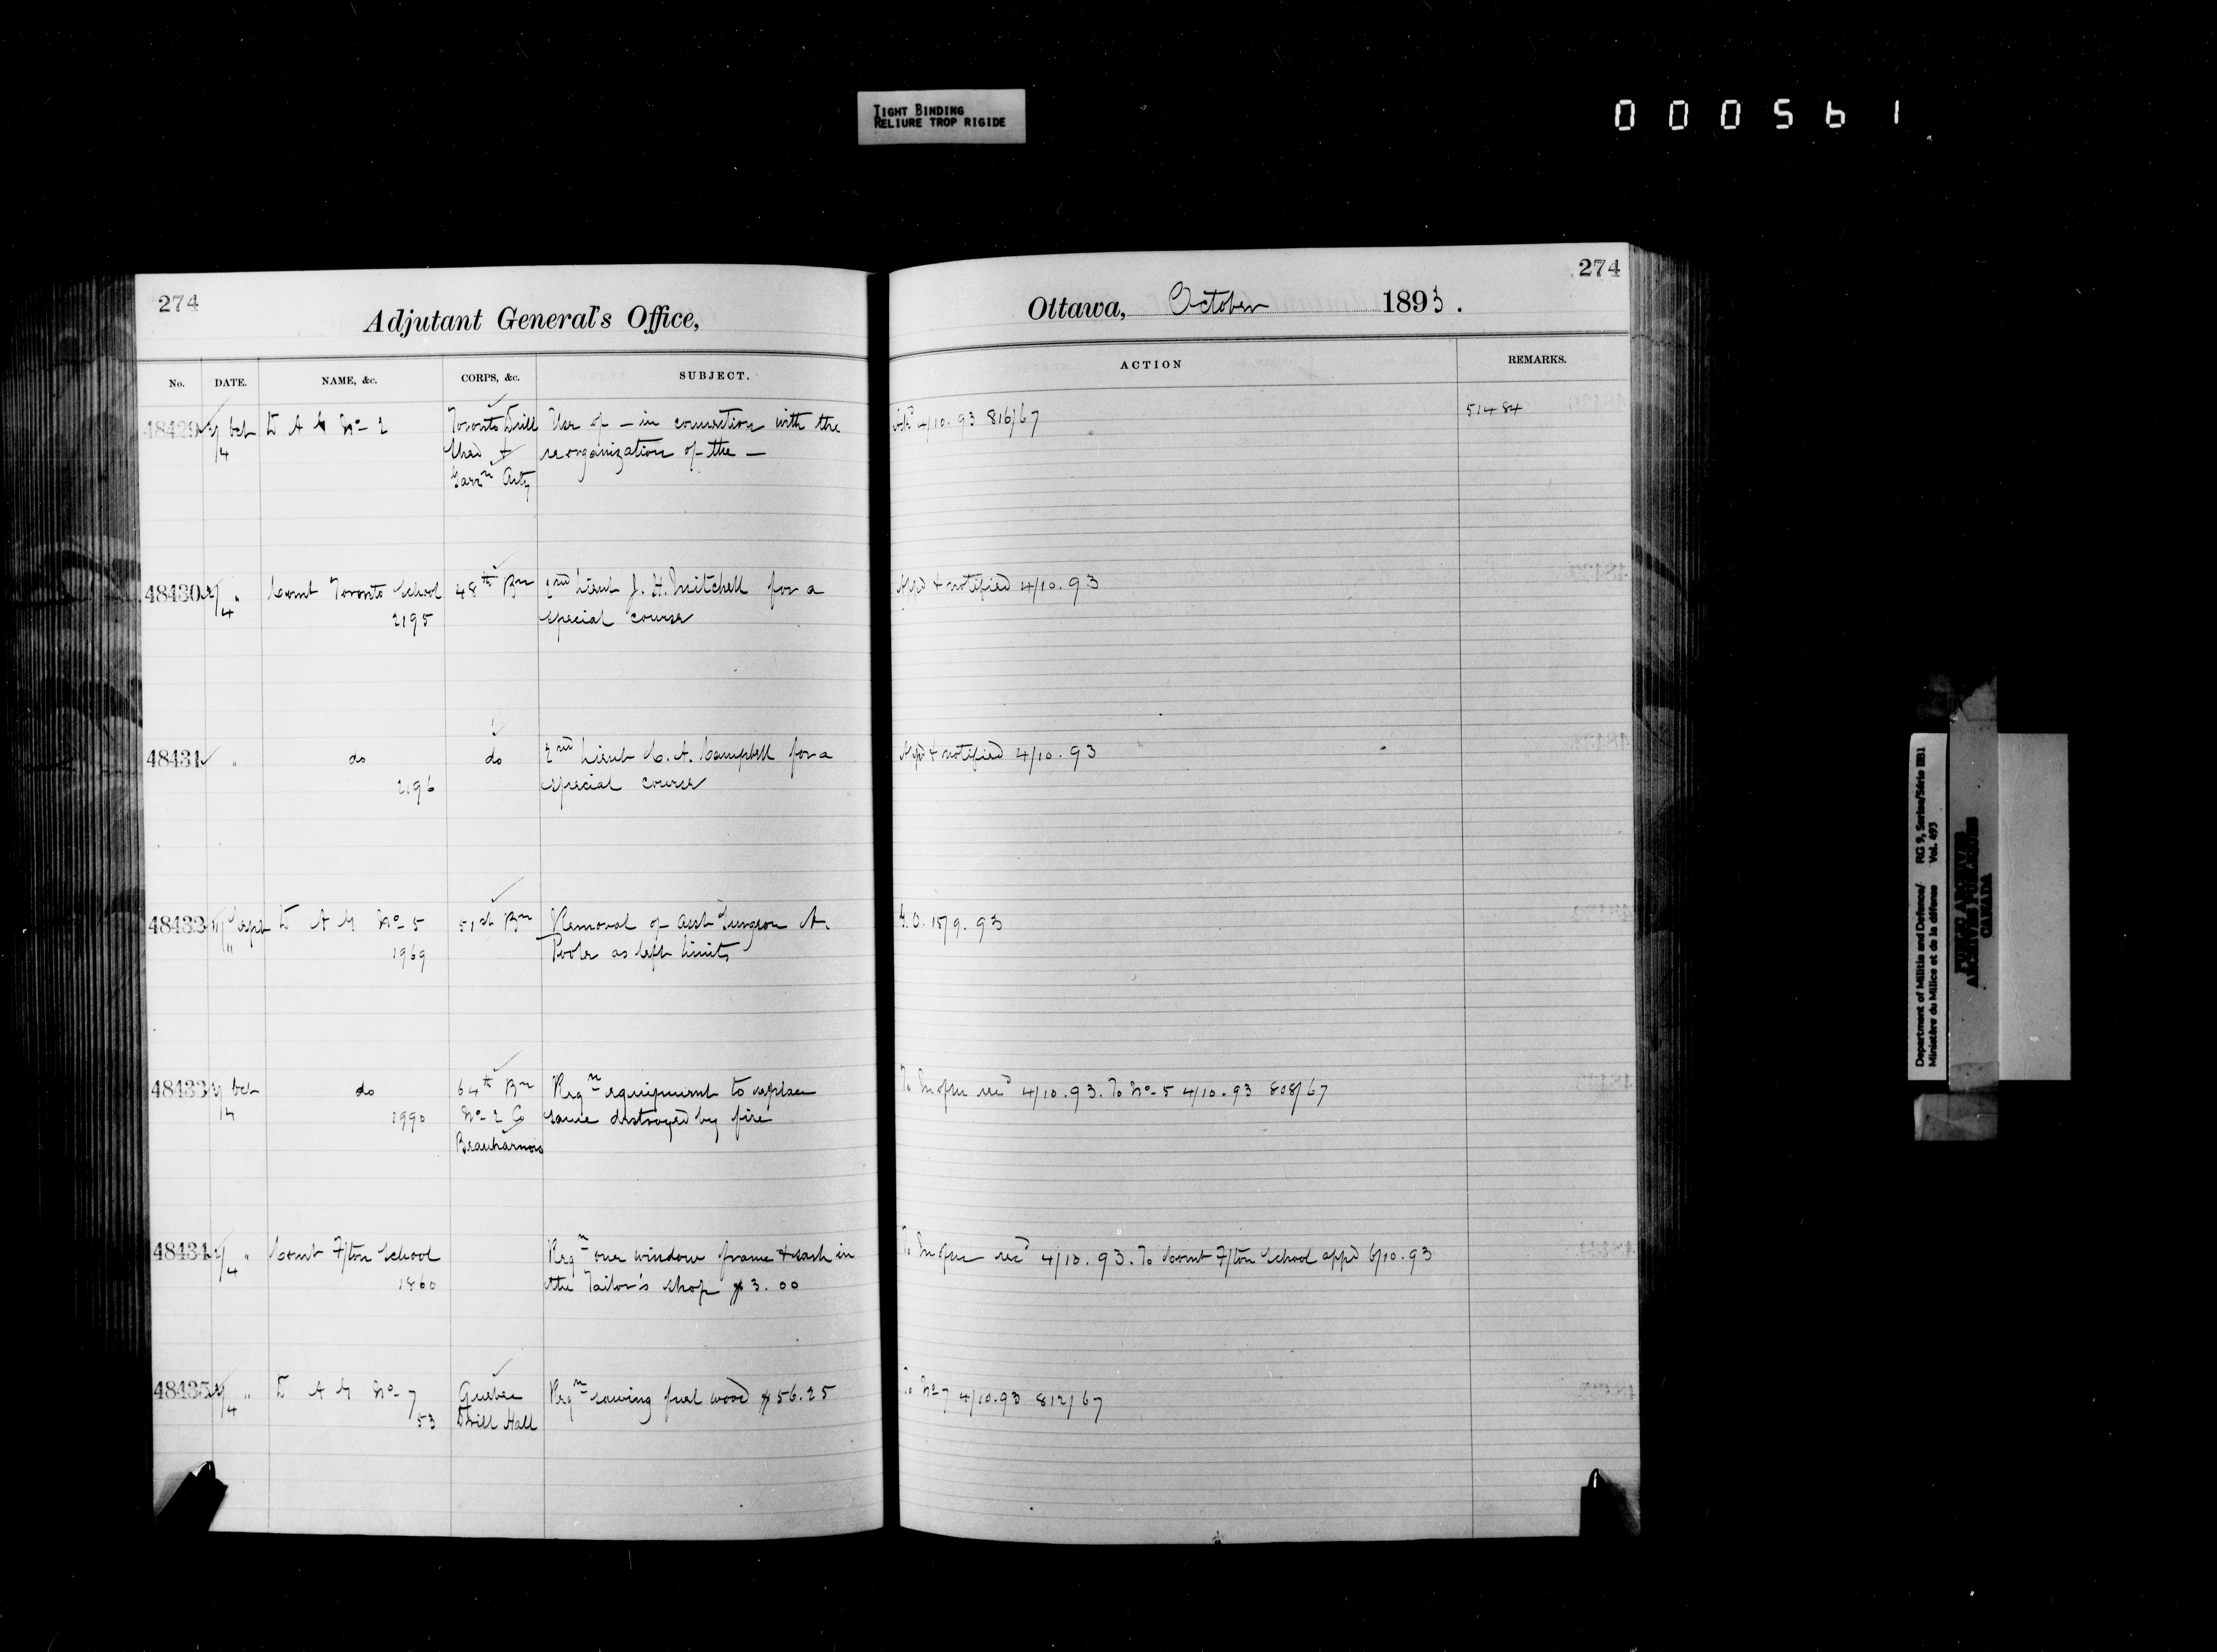 TIGHT BINDING
RELIURE TROP RIGIDE
000561
274
Adjutant General's Office,
No. DATE. NAME, &c. CORPS, &c. SUBJECT.
48429 Oct D A G No- 2 Toronto Drill Use of - in connection with the
4 Shed + reorganization of the -
Garrn Arty
48430 4 " Comt Toronto School 48th Bn 2nd Lieut J. H. Mitchell for a
2195 special course
48431 " do do 2nd Lieut C. A. Campbell for a
2196 special course
48432 Sept D A G No- 5 51st Bn Removal of Asst Surgeon A.
1969 Poole as left limits
48433 Oct do 64th Bn Reqn equipment to replace
4 1990 No- 2 Co same destroyed by fire
Beauharnois
48434 " Comt F/ton School Reqn one window frame & sash in
4 1860 the Tailor's shop $3.00
48435 " D A G No- 7 Quebec Reqn sawing fuel wood $56.25
4 53 Drill Hall
274
Ottawa, October 1893.
ACTION REMARKS.
4/10.93 816/67 51484
+ notified 4/10.93
+ notified 4/10.93
G.O. 15/9.93
To recd 4/10.93. To No- 5 4/10.93 808/67
To recd 4/10.93. To Comt F/ton School appd 6/10.93
To No 7 4/10.93 812/67
Department of Militia and Defence/ RG 9, Series/Série IIB1
Ministère du Milice et de la défense Vol. 493
PUBLIC ARCHIVES
ARCHIVES PUBLIQUES
CANADA